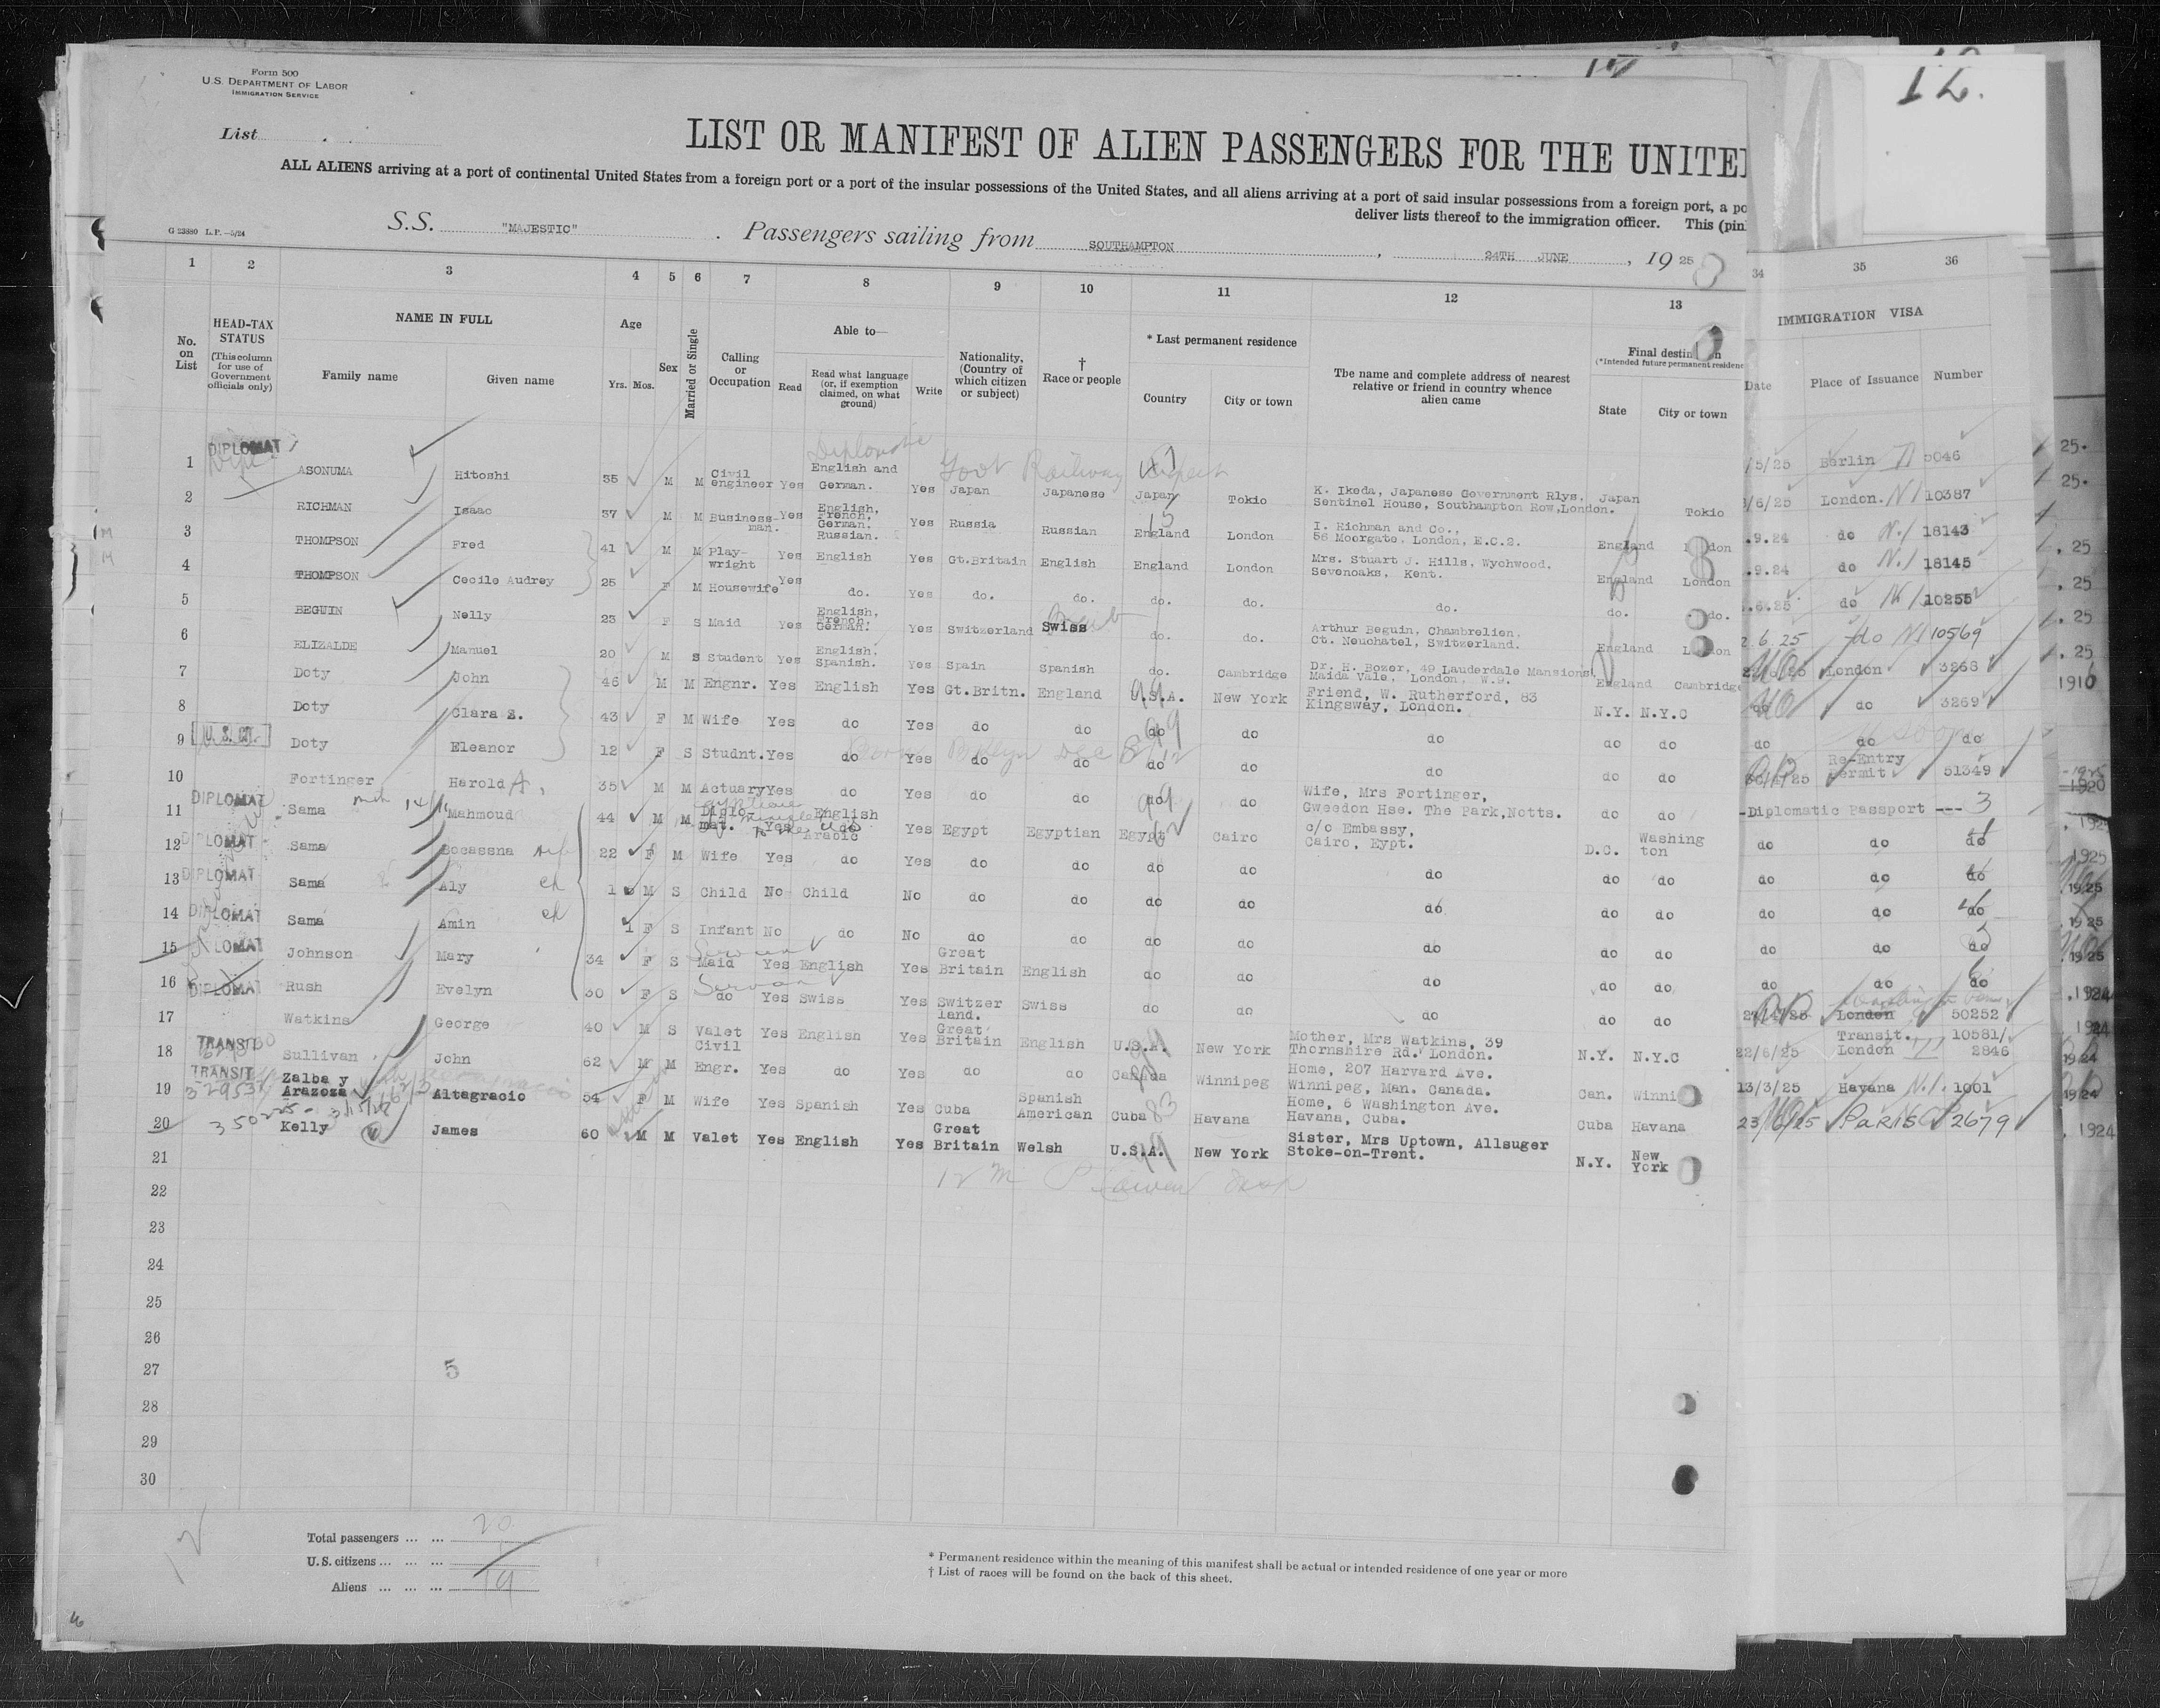 Form 500
U.S. DEPARTMENT OF LABOR
IMMIGRATION SERVICE
12.
List
LIST OR MANIFEST OF ALIEN PASSENGERS FOR THE UNITE
ALL ALIENS arriving at a port of continental United States from a foreign port or a port of the insular possessions of the United States, and all aliens arriving at a port of said insular possessions from a foreign port, a po
deliver lists thereof to the immigration officer. This (pin
G 23880 L.P.—5/24
S.S. "MAJESTIC" . Passengers sailing from SOUTHAMPTON , 24TH JUNE , 19 25
1 2 3 4 5 6 7 8 9 10 11 12 13 34 35 36
No. on List
HEAD-TAX STATUS
(This column for use of Government officials only)
NAME IN FULL
Family name Given name
Age
Yrs. Mos.
Sex
Married or Single
Calling or Occupation
Able to—
Read
Read what language (or, if exemption claimed, on what ground)
Write
Nationality, (Country of which citizen or subject)
† Race or people
* Last permanent residence
Country City or town
The name and complete address of nearest relative or friend in country whence alien came
Final destin n
(*Intended future permanent residenc
State City or town
IMMIGRATION VISA
Date Place of Issuance Number
Diplomatic
Govt Railway Expert
1 DIPLOMAT ASONUMA Hitoshi 35 M M Civil engineer Yes English and German. Yes Japan Japanese Japan Tokio K. Ikeda, Japanese Government Rlys. Sentinel House, Southampton Row, London. Japan Tokio /5/25 Berlin 5046
2 RICHMAN Isaac 37 M M Business-man. Yes English, French, German. Russian. Yes Russia Russian England London I. Richman and Co., 56 Moorgate, London, E.C.2. England London /6/25 London. 10387
3 THOMPSON Fred 41 M M Play-wright Yes English Yes Gt.Britain English England London Mrs. Stuart J. Hills, Wychwood, Sevenoaks, Kent. England London .9.24 do 18143
4 THOMPSON Cecile Audrey 25 F M Housewife Yes do. Yes do. do. do. do. do. do. do. .9.24 do 18145
5 BEGUIN Nelly 23 F S Maid Yes English, French, German. Yes Switzerland Swiss do. do. Arthur Beguin, Chambrelien, Ct. Neuchatel, Switzerland. England London .6.25 do 10255
6 ELIZALDE Manuel 20 M S Student Yes English, Spanish. Yes Spain Spanish do. Cambridge Dr. H. Bozer, 49 Lauderdale Mansions, Maida Vale, London, W.9. England Cambridge 2 6.25 do 10569
7 Doty John 46 M M Engnr. Yes English Yes Gt.Britn. England U.S.A. New York Friend, W. Rutherford, 83 Kingsway, London. N.Y. N.Y.C 22/6/25 London 3268
8 Doty Clara E. 43 F M Wife Yes do Yes do do do do do do do do do 3269
9 U. S. CIT. Doty Eleanor 12 F S Studnt. Yes do Yes do do do do do do do do do do
10 Fortinger Harold A. 35 M M Actuary Yes do Yes do do do do Wife, Mrs Fortinger, Gweedon Hse. The Park, Notts. do do Re-Entry Permit 51349
11 DIPLOMAT Sama Mahmoud 44 M M Diplo-mat. Yes English Arabic Yes Egypt Egyptian Egypt Cairo c/o Embassy, Cairo, Eypt. D.C. Washing ton -Diplomatic Passport --- 3
12 DIPLOMAT Sama 22 F M Wife Yes do Yes do do do do do do do do do do
13 DIPLOMAT Sama Aly 1 M S Child No Child No do do do do do do do do do do
14 DIPLOMAT Sama Amin 1 F S Infant No do No do do do do do do do do do do
15 DIPLOMAT Johnson Mary 34 F S Servant Maid Yes English Yes Great Britain English do do do do do do do do
16 DIPLOMAT Rush Evelyn 30 F S Servant do Yes Swiss Yes Switzer land. Swiss do do do do do do do do
17 Watkins George 40 M S Valet Yes English Yes Great Britain English U.S.A. New York Mother, Mrs Watkins, 39 Thornshire Rd. London. N.Y. N.Y.C London 50252
18 TRANSIT Sullivan John 62 M M Civil Engr. Yes do Yes do do Canada Winnipeg Home, 207 Harvard Ave. Winnipeg, Man. Canada. Can. Winni 22/6/25 Transit. London 10581/ 2846
19 TRANSIT Zalba y Arazoza Altagracio 54 F M Wife Yes Spanish Yes Cuba Spanish American Cuba Havana Home, 6 Washington Ave. Havana, Cuba. Cuba Havana 13/3/25 Havana 1001
20 Kelly James 60 M M Valet Yes English Yes Great Britain Welsh U.S.A. New York Sister, Mrs Uptown, Allsuger Stoke-on-Trent. N.Y. New York 23/6/25 PARIS 2679
21
22
23
24
25
26
27
28
29
30
5
Total passengers ... ... 20
U.S. citizens ... ... ... 1
Aliens ... ... ... 19
* Permanent residence within the meaning of this manifest shall be actual or intended residence of one year or more
† List of races will be found on the back of this sheet.